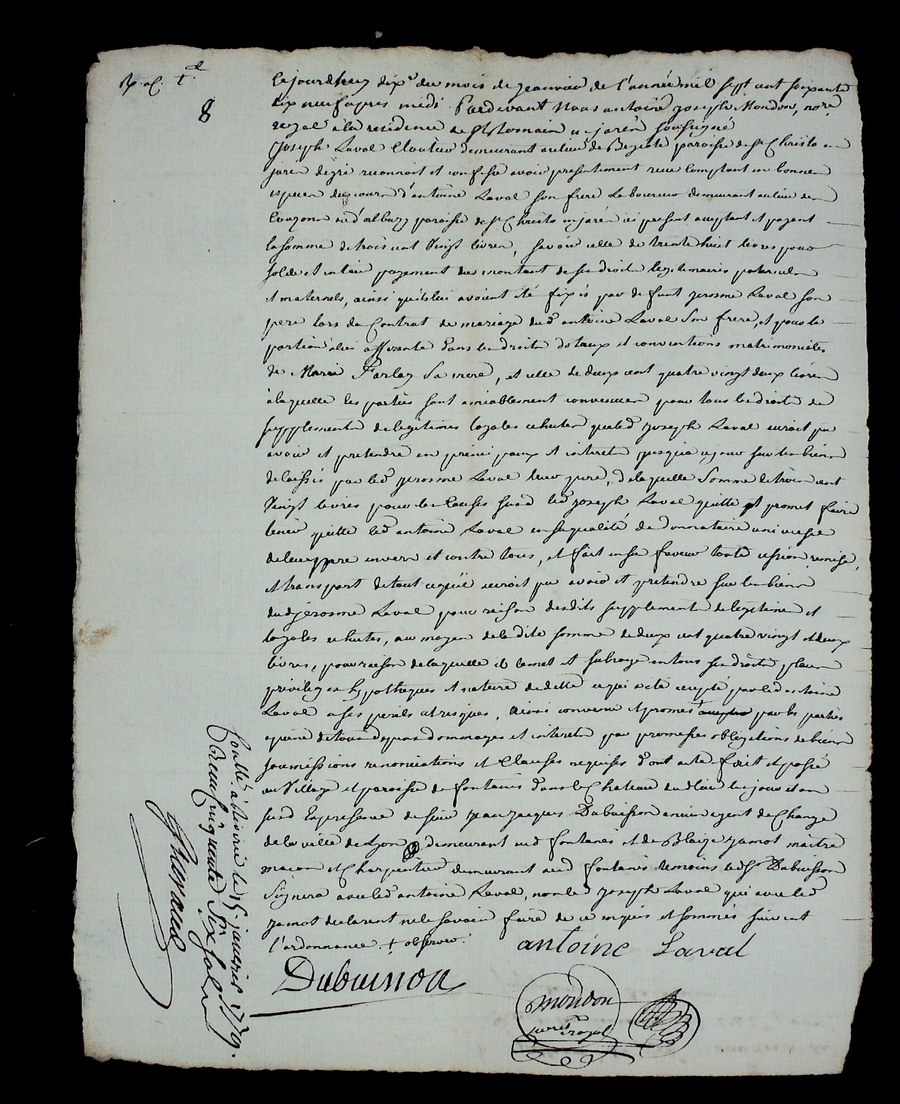 8
Cejourdhuy dix.e du mois de janvier de l'année mil sept cent soixante
dix neuf apres midi Pardevant Nous antoine joseph Mondon, no.re
royal à la residence de St Romain en jarés soussigné
Joseph Laval Cloutier demeurant au lieu de paroisse de St Christo en
jarés de gré reconnoit et confesse avoir presentement recu comptant en bonnes
especes de cours d'antoine Laval son frere Laboureur demeurant au lieu de
paroisse de St Christo en jarés ici present acceptant et payant
la somme de trois cent vingt livres, savoir celle de trente huit livres pour
solde et entier payement du montant de ses droits legitimaires paternels
et maternels, ainsi qu'ils lui avoient été fixés par de funt jerosme Laval son
pere lors du Contrat de mariage dud antoine Laval son frere, et pour la
portion a lui afferante dans les droits dotaux et conventions matrimoniales
de Marie sa mere, et celle de deux cent quatre vingt deux livres
à laquelle les parties sont amiablement convenues pour tous les droits de
supplements de legitimes legales echutes que led joseph Laval auroit pu
avoir et pretendre en principaux et interets jusqu'à ce jour sur les biens
delaissés par led jerosme Laval leur pere, de laquelle somme de trois cent
vingt livres pour les causes susd led joseph Laval quitte et promet faire
tenir quitte led antoine Laval en sa qualité de donnataire universel
de leur pere envers et contre tous, et fait en sa faveur toute cession, remise,
et transport de tout ce qu'il auroit pu avoir et pretendre sur les biens
dud jerosme Laval pour raison desdits supplement de legitime et
legales echutes, au moyen de la dite somme de deux cent quatre vingt deux
livres, pour raison de laquelle il le met et subroge en tous ses droits places
privileges hypotheques et nature de dette ce qui a été accepté par led antoine
Laval a ses perils et risques, Ainsi convenu et promis par les parties
a peine de tous depens dommages et interets par promesses obligations de biens
soumissions renonciations et Clauses requises dont acte fait et passé
au Village et paroisse de fontanes dans le Chateau dud lieu les jour et an
susd En presence de sieur jean jacques Dubuisson ancien agent de Change
de la ville de Lyon demeurant aud fontanes et de Blaize jamot maitre
macon et Charpentier demeurant aud fontanes temoins led Sr Dubuisson
signera avec led antoine Laval, non led joseph Laval qui avec led
jamot declarent ne le savoir faire de ce enquis et sommés suivant
l'ordonnance
antoine Laval
Dubuisson
Mondon
no.re royal
Con.tllé à le 15 janvier 1779.
Reçu cinquante six sols